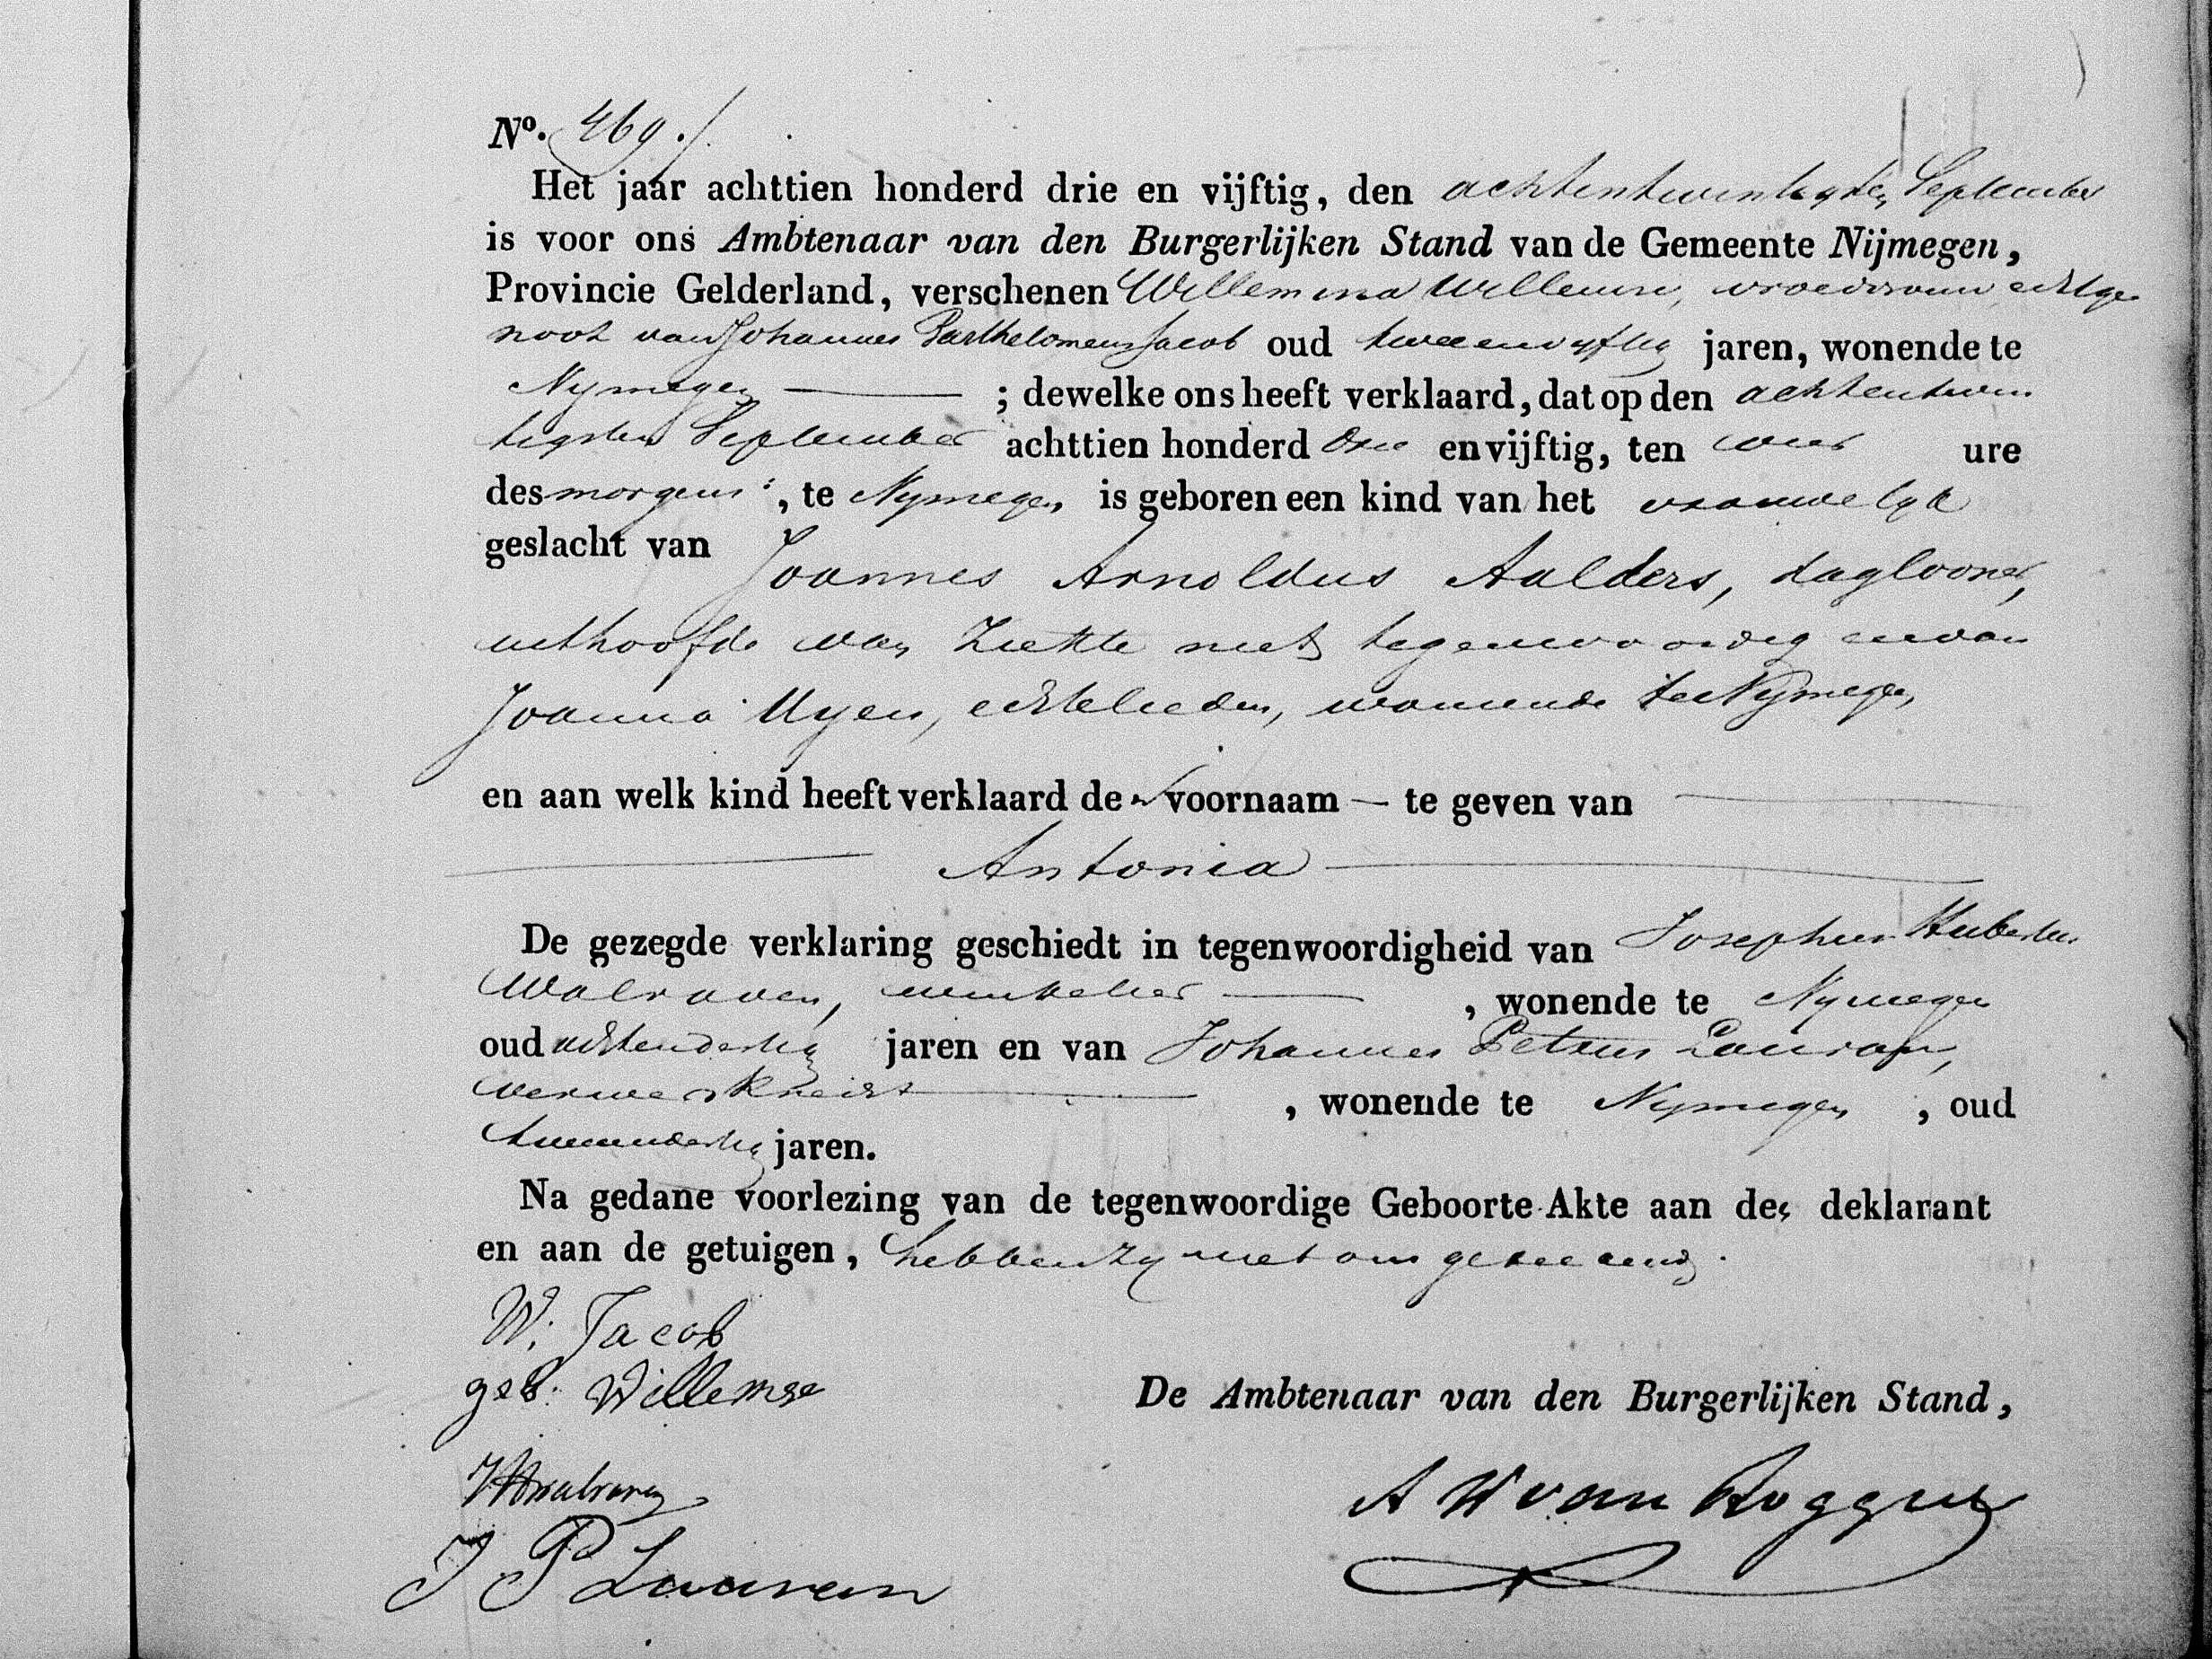 Nº. 469.
Het jaar achttien honderd drie en vijftig, den achtentwintigsten September
is voor ons Ambtenaar van den Burgerlijken Stand van de Gemeente Nijmegen,
Provincie Gelderland, verschenen Willemina Willemse, vroedvrouw echtge
noot van Johannes Bartholomeus Jacob oud tweeenvyftig jaren, wonende te
Nymegen ; dewelke ons heeft verklaard, dat op den achtentwin
tigsten September achttien honderd drie en vijftig, ten vier ure
des morgens, te Nymegen is geboren een kind van het vrouwelyk
geslacht van Joannes Arnoldus Aalders, daglooner,
uithoofde van ziekte niet tegenwoordig en van
Joanna Uyen, echtelieden, wonende te Nymegen,
en aan welk kind heeft verklaard den voornaam te geven van
Antonia
De gezegde verklaring geschiedt in tegenwoordigheid van Josephus Hubertus
Walraven, winkelier, wonende te Nymegen
oud achtendertig jaren en van Johannes Petrus
ververs knecht, wonende te Nymegen, oud
tweeendertig jaren.
Na gedane voorlezing van de tegenwoordige Geboorte Akte aan de deklarant
en aan de getuigen, hebben zy met ons geteekend.
W. Jacob
geb. Willemse
De Ambtenaar van den Burgerlijken Stand,
J H Walraven
A W van Roggen
J P Lauran